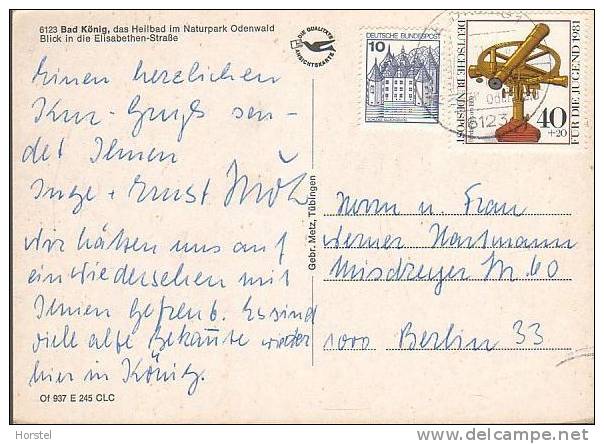 6123 Bad König, das Heilbad im Naturpark Odenwald
Blick in die Elisabethen-Straße
DIE QUALITÄTS
ANSICHTSKARTE
10
DEUTSCHE BUNDESPOST
DEUTSCHE BUNDESPOST
FÜR DIE JUGEND 1981
40
+20
6123
Einen herzlichen
Kur-Gruß sen-
det Ihnen
Inge + Ernst
Wir hätten uns auf
ein Wiedersehen mit
Ihnen gefreut. Es sind
viele alte Bekannte wieder
hier in König.
Gebr. Metz, Tübingen
Herrn u. Frau
Werner Hartmann
Misdroyer 60
1000 Berlin 33
Of 937 E 245 CLC
Horstel
www.delcampe.net